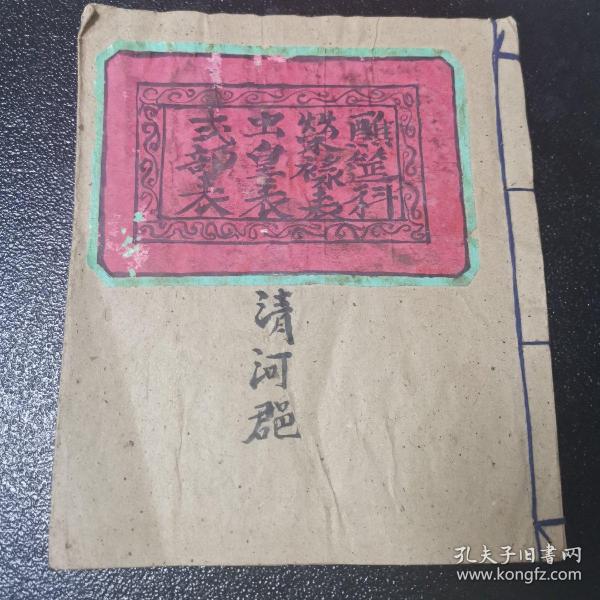 醮筵科
榮祿表
出皇表
式部表
清河郡
孔夫子旧書网
www.kongfz.com